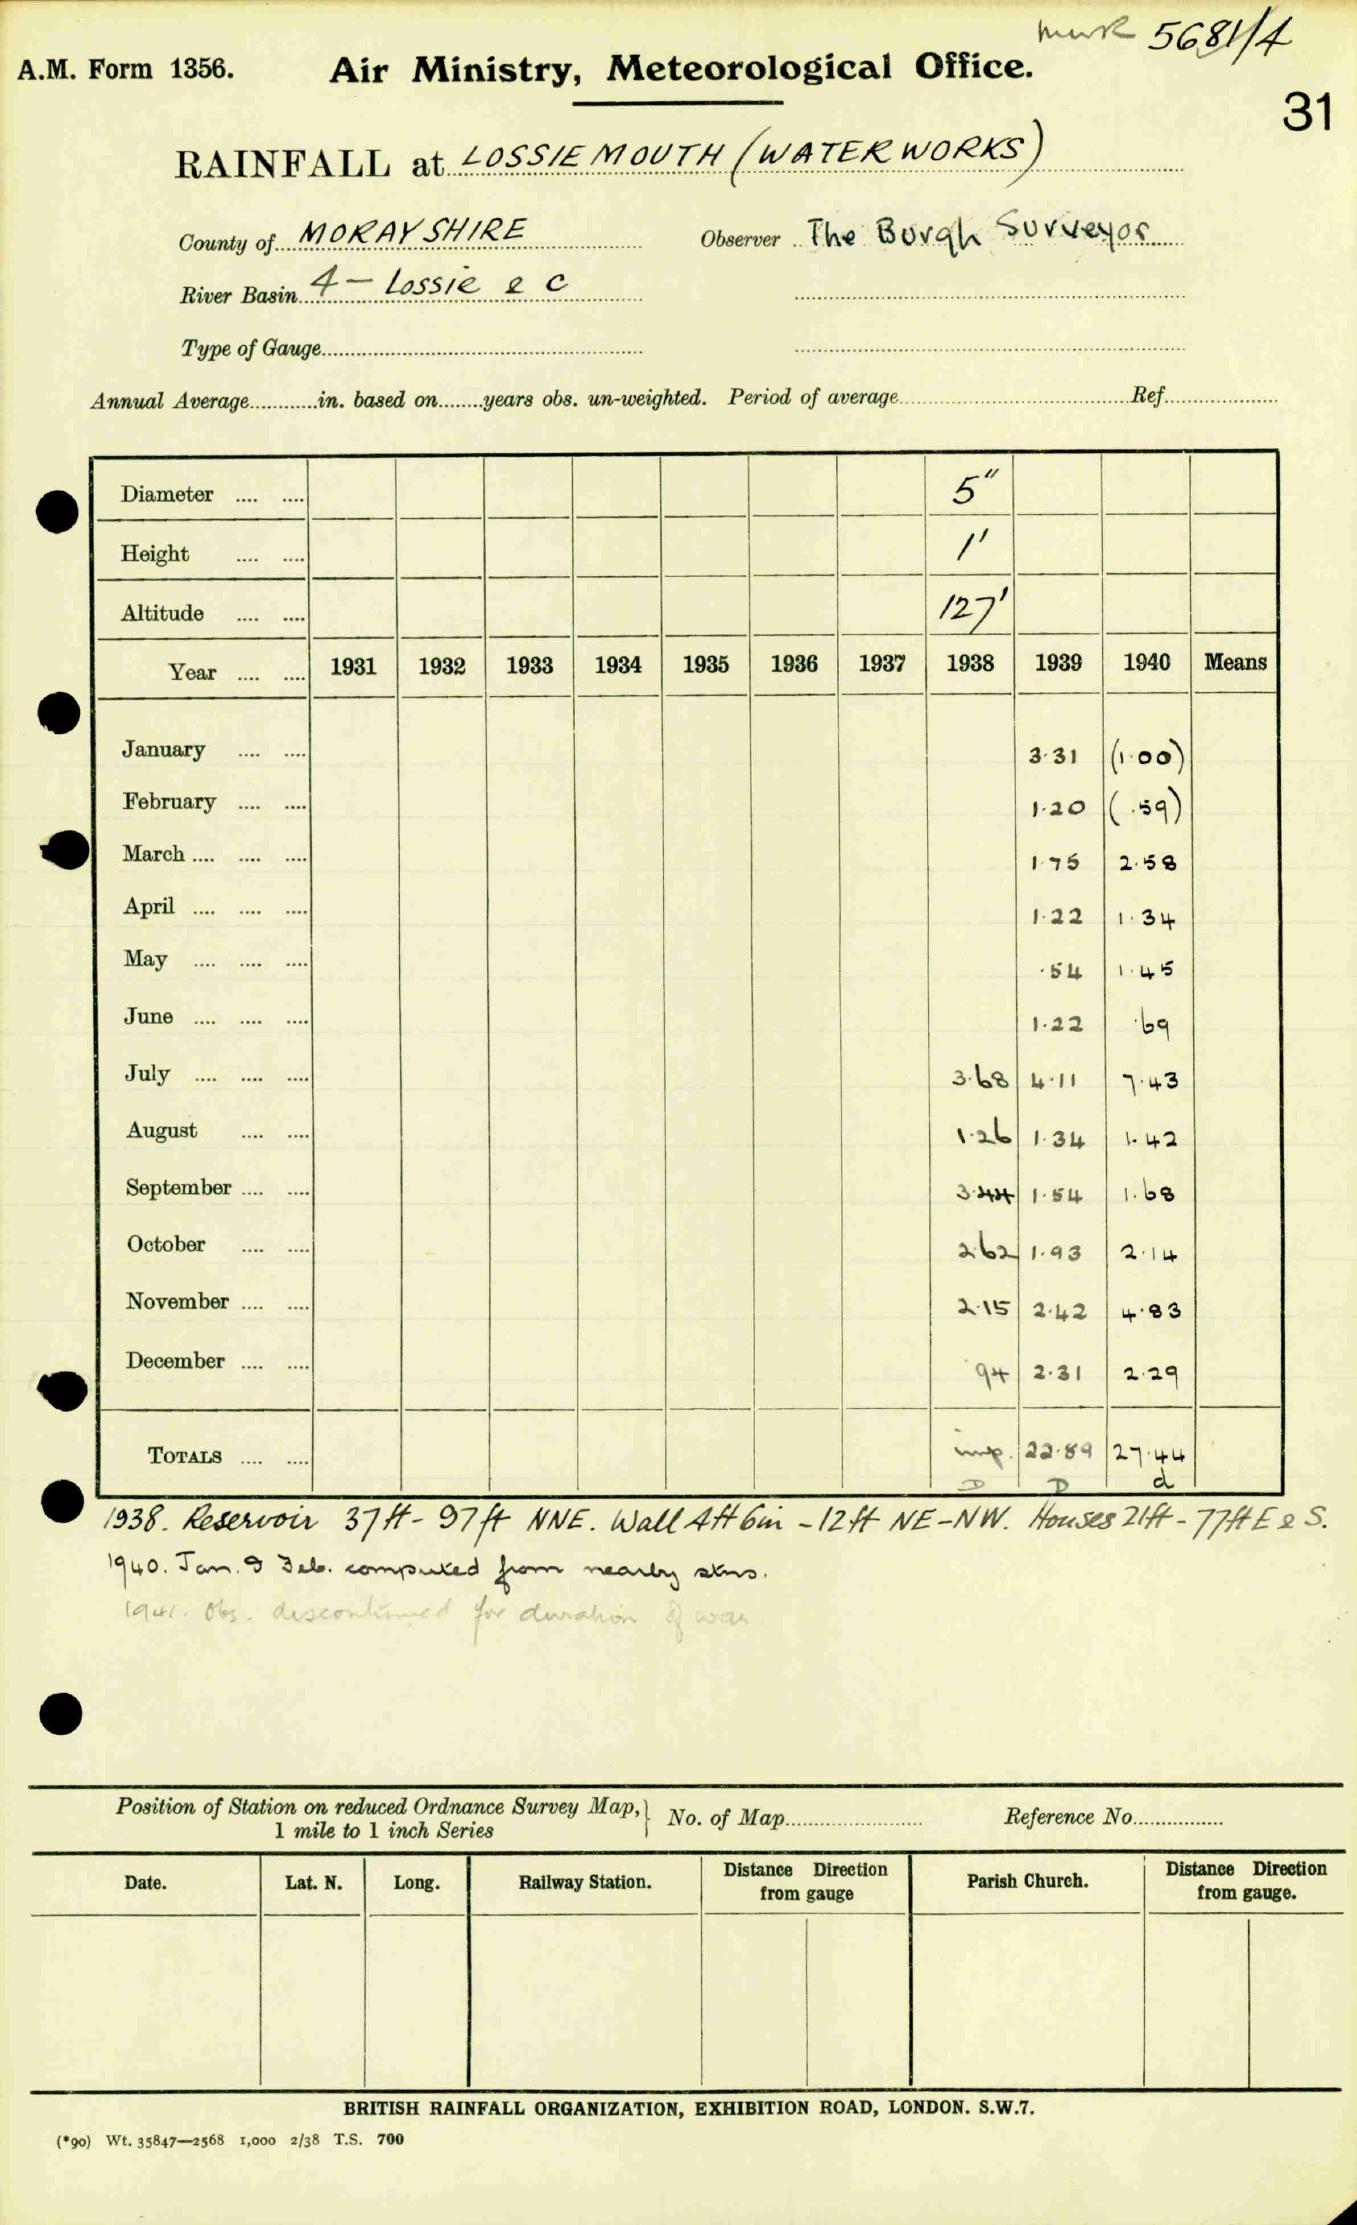 5681/4
A.M. Form 1356. Air Ministry, Meteorological Office.
31
RAINFALL at LOSSIEMOUTH (WATERWORKS)
County of MORAYSHIRE Observer The Burgh Surveyor
River Basin 4 - Lossie & C
Type of Gauge
Annual Average in. based on years obs. un-weighted. Period of average Ref.
Diameter 5"
Height 1'
Altitude 127'
Year 1931 1932 1933 1934 1935 1936 1937 1938 1939 1940 Means
January 3.31 (1.00)
February 1.20 (.59)
March 1.75 2.58
April 1.22 1.34
May .54 1.45
June 1.22 .69
July 3.68 4.11 7.43
August 1.26 1.34 1.42
September 3.44 1.54 1.68
October 2.62 1.93 2.14
November 2.15 2.42 4.83
December .94 2.31 2.29
TOTALS imp. 22.89 27.44
D D d
1938. Reservoir 37ft - 97ft NNE. Wall 4ft 6in - 12ft NE-NW. Houses 21ft - 77ft E & S.
1940. Jan. & Feb. computed from nearby stns.
1941. Obs. discontinued for duration of war
Position of Station on reduced Ordnance Survey Map, } No. of Map Reference No.
1 mile to 1 inch Series
Date. Lat. N. Long. Railway Station. Distance Direction from gauge Parish Church. Distance Direction from gauge.
BRITISH RAINFALL ORGANIZATION, EXHIBITION ROAD, LONDON. S.W.7.
(*90) Wt. 35847—2568 1,000 2/38 T.S. 700